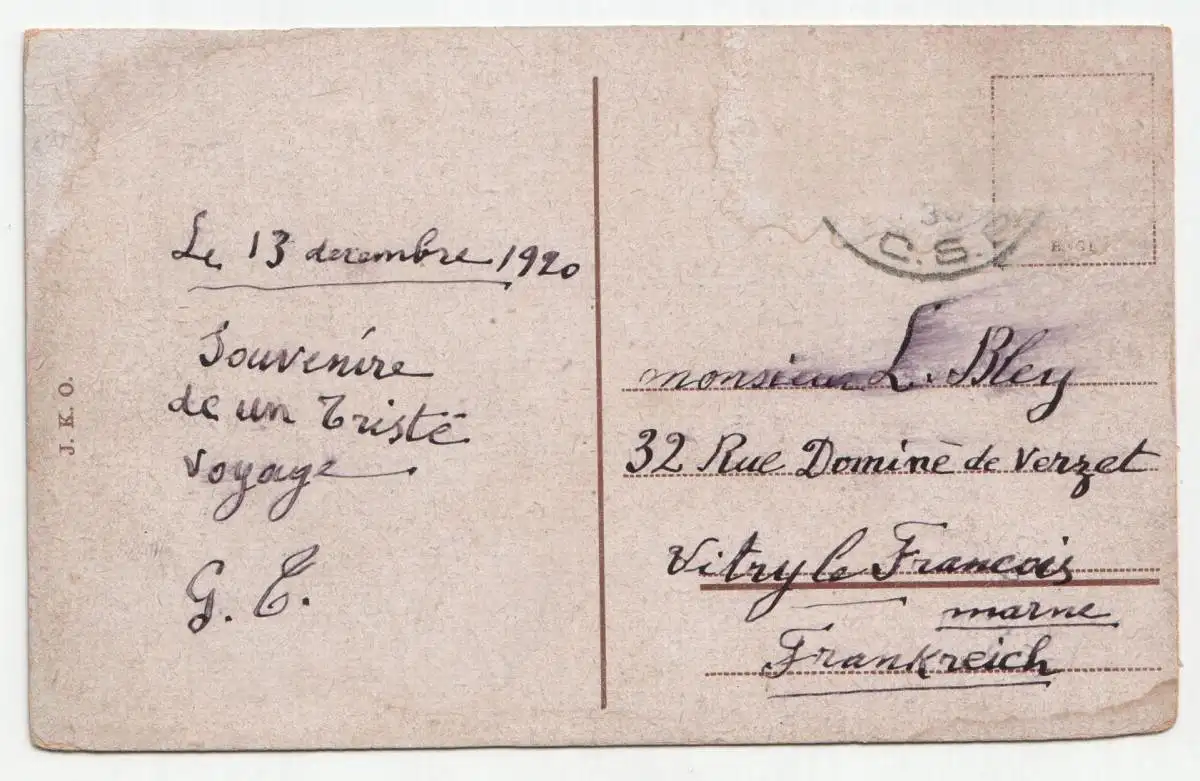 Le 13 decembre 1920
Souvenire
de un Tristé
voyage
G. T.
J. K. O.
C.S.
monsieur L. Bley
32 Rue Dominè de Verzet
Vitry le Francois
marne
Frankreich